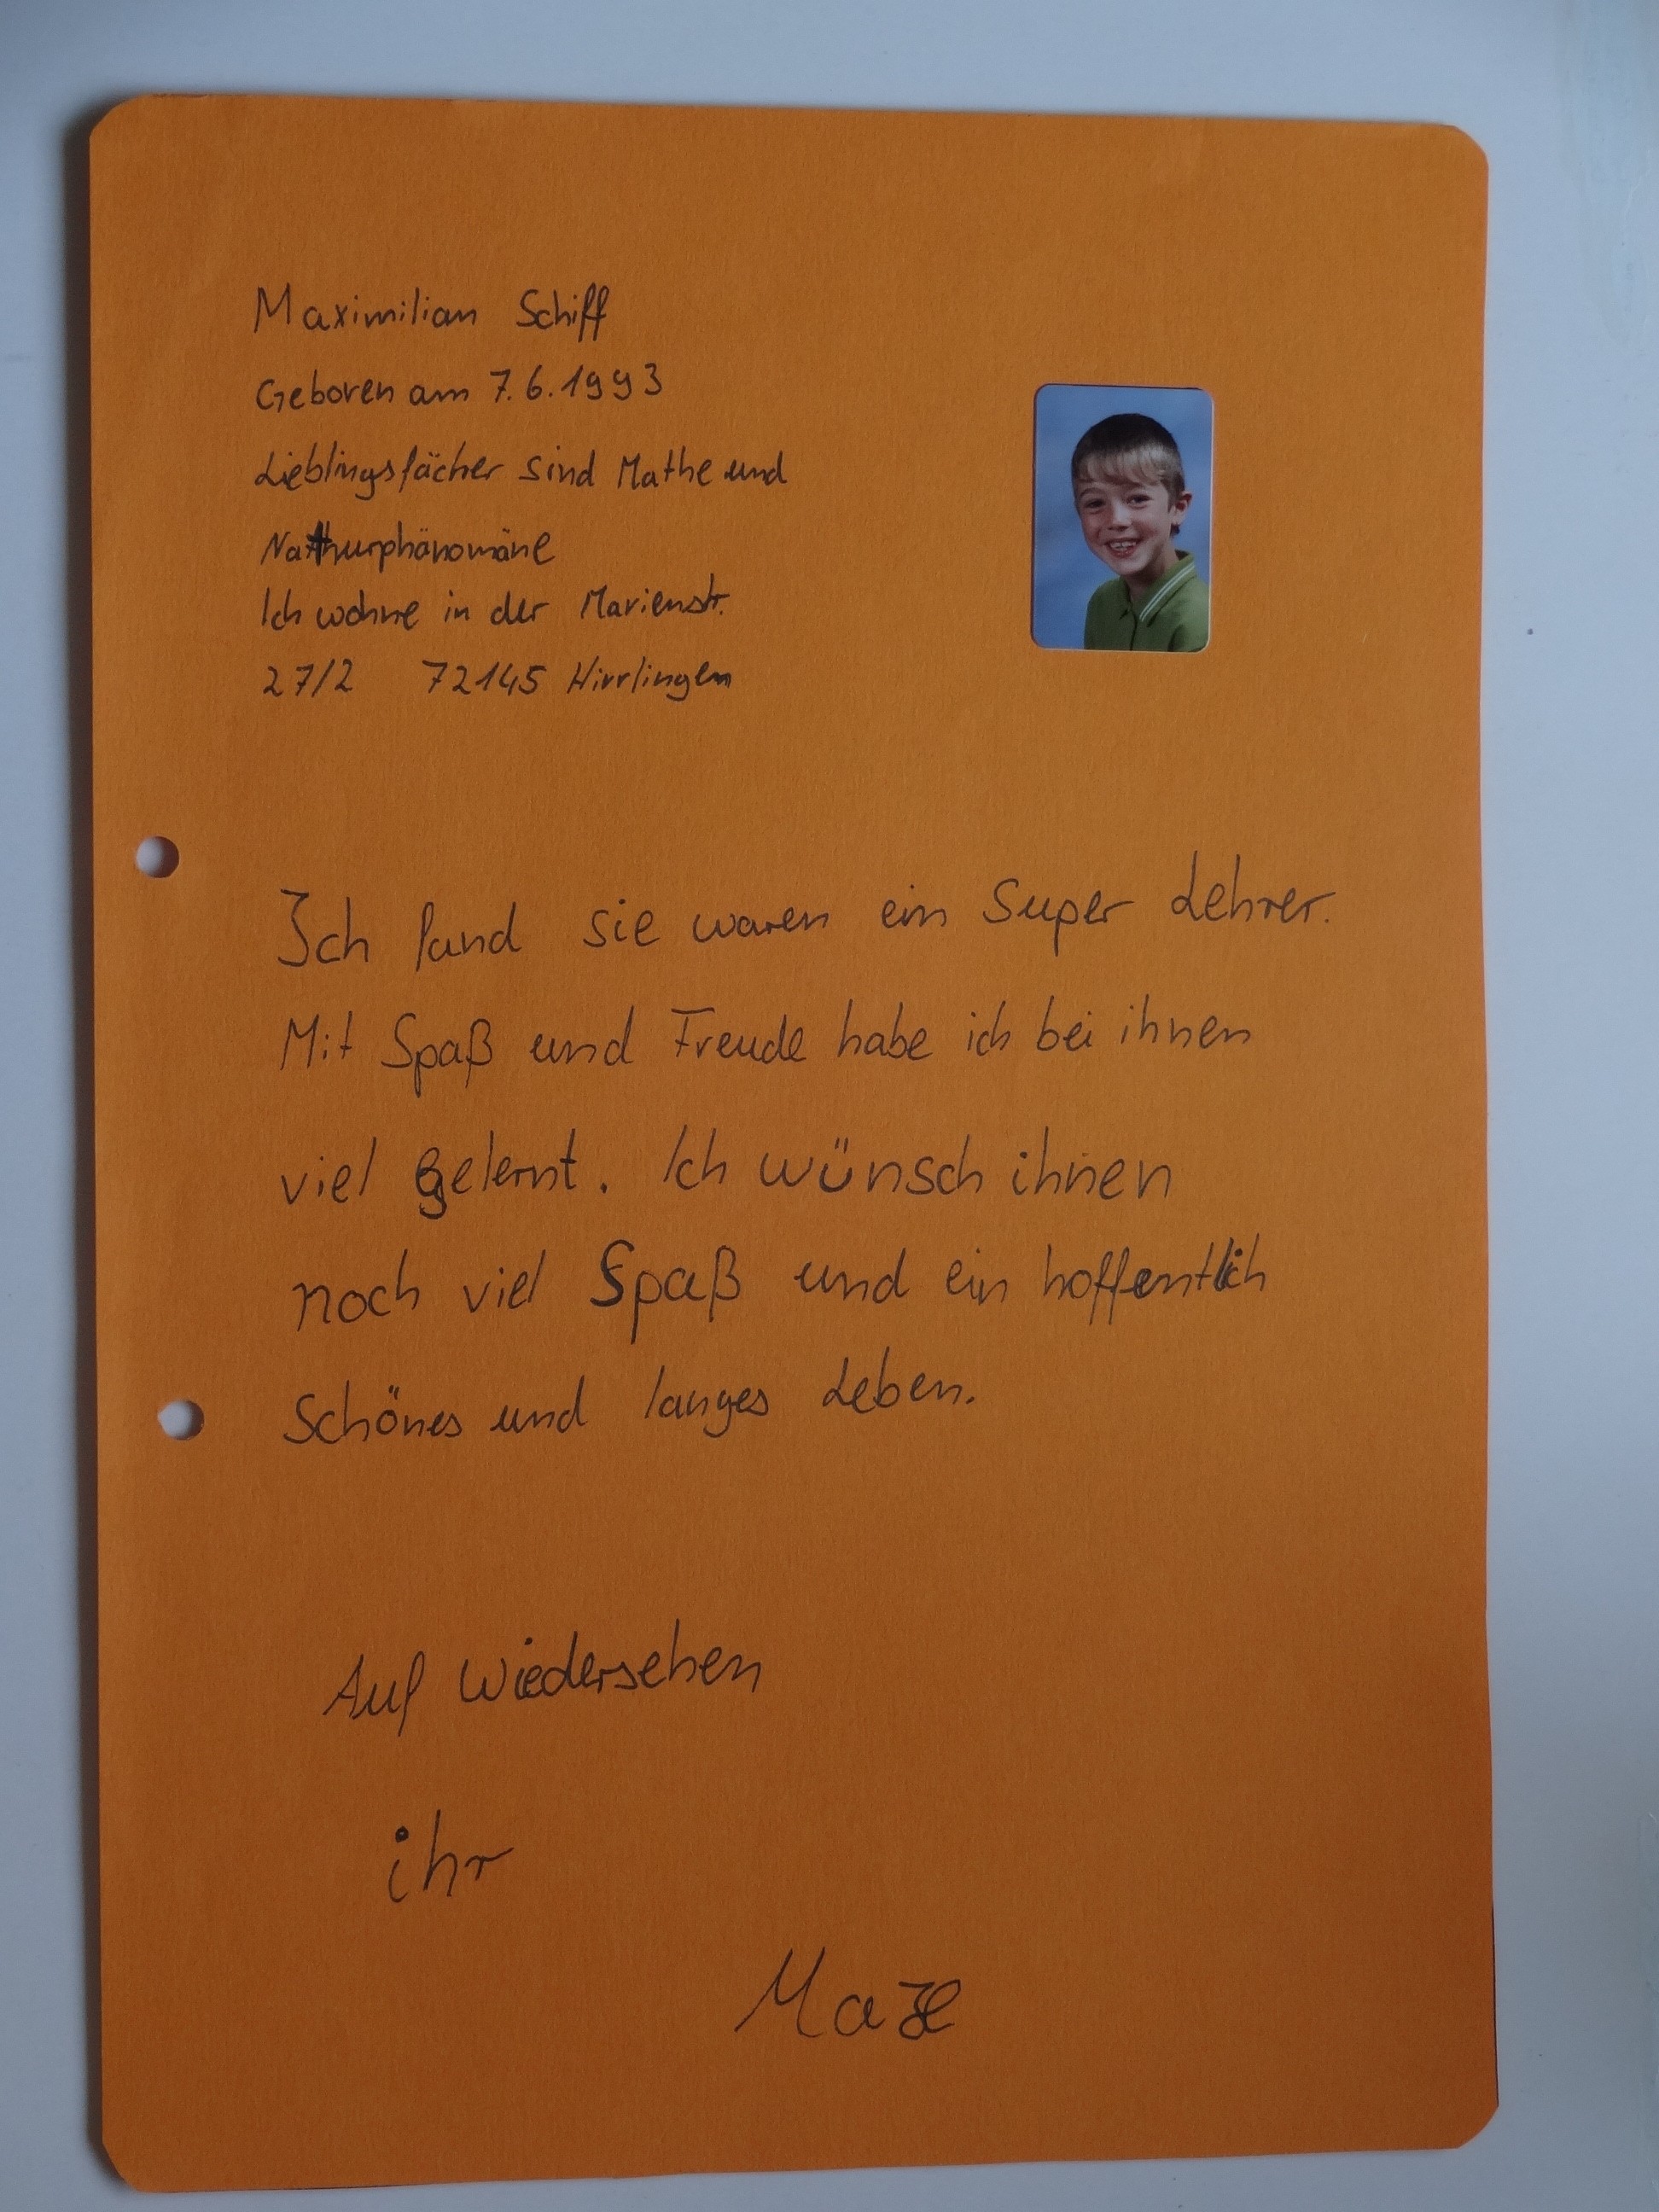 Maximilian Schiff
Geboren am 7.6.1993
Lieblingsfächer sind Mathe und
Nathurphänomäne
Ich wohne in der Marienstr.
27/2 72145 Hirrlingen
Ich fand sie waren ein Super Lehrer.
Mit Spaß und Freude habe ich bei ihnen
viel gelernt. Ich wünsch ihnen
noch viel Spaß und ein hoffentlich
Schönes und langes Leben.
Auf Wiedersehen
ihr
Max